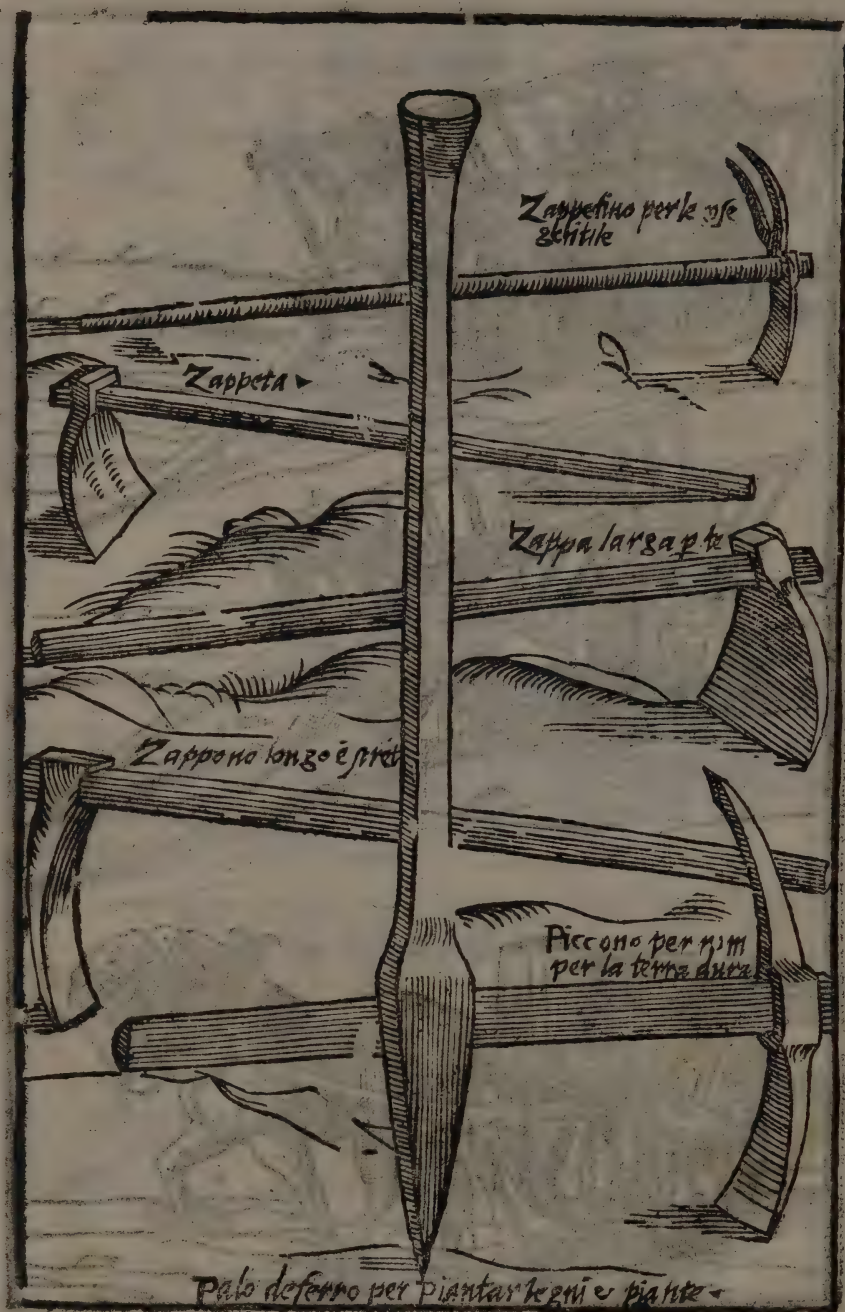 Zappetino per le use
gentile
Zappeta
Zappa larga p te
Zappono longo è stret
Piccono per rom
per la terra dura
Palo de ferro per piantar legni e piante